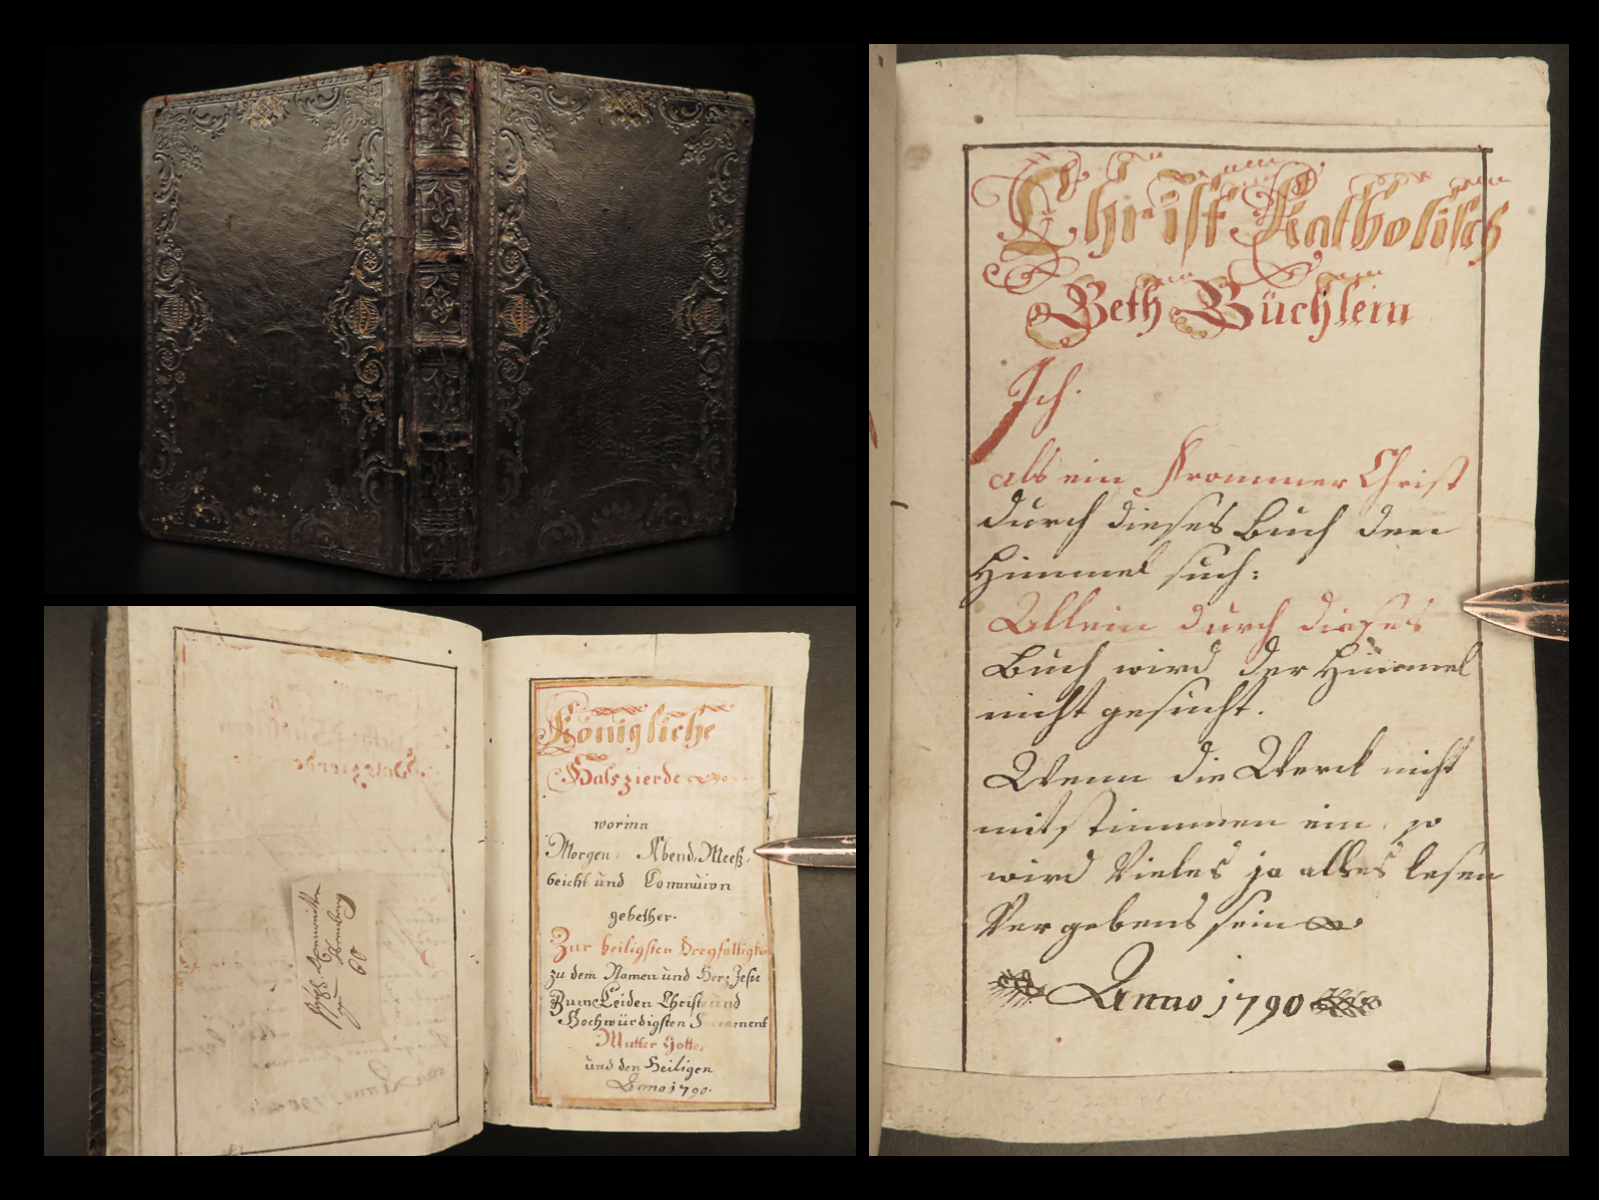 Christ Katholisch
Beth Büchlein
Ich
als ein Frommer Christ
durch dieses Buch den
Himmel such:
Allein durch dieses
Buch wird der Himmel
nicht gesucht.
Wenn die Werck nicht
mitstimmen ein, so
wird Vieles ja alles lesen
Vergebens sein
Anno 1790
Königliche
Halszierde
worinn
Morgen, Abend, Meeß,
beicht und Commuion
gebether.
Zur heiligsten Dreyfaltigkeit
zu dem Namen und Herz Jesu
Zum Leiden Christ und
Hochwürdigsten Sacrament
Mutter Gottes
und den Heiligen
Anno 1790.
60